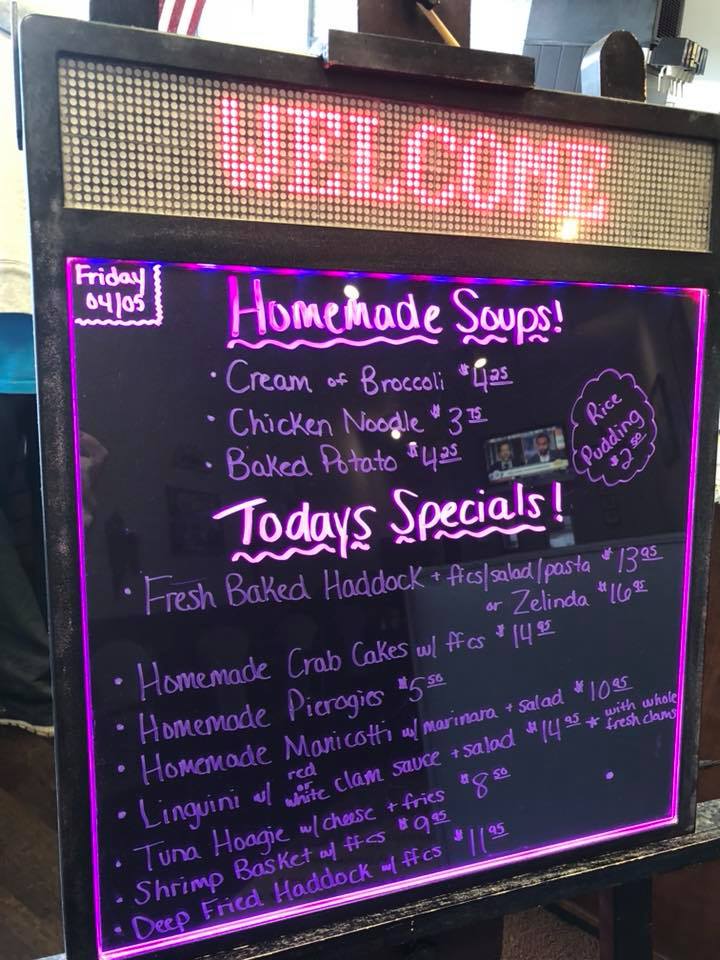 WELCOME
Friday
04/05
Homemade Soups!
• Cream of Broccoli $4.25
• Chicken Noodle $3.75
• Baked Potato $4.25
Rice
Pudding
$2.50
Todays Specials!
• Fresh Baked Haddock + ffcs/salad/pasta $13.95
or Zelinda $16.95
• Homemade Crab Cakes w/ ffcs $14.95
• Homemade Pierogies $5.50
• Homemade Manicotti w/ marinara + salad $10.95
• Linguini w/ red or white clam sauce + salad $14.95 * with whole fresh clams
• Tuna Hoagie w/ cheese + fries $8.50
• Shrimp Basket w/ ffcs $9.95
• Deep Fried Haddock w/ ffcs $11.95